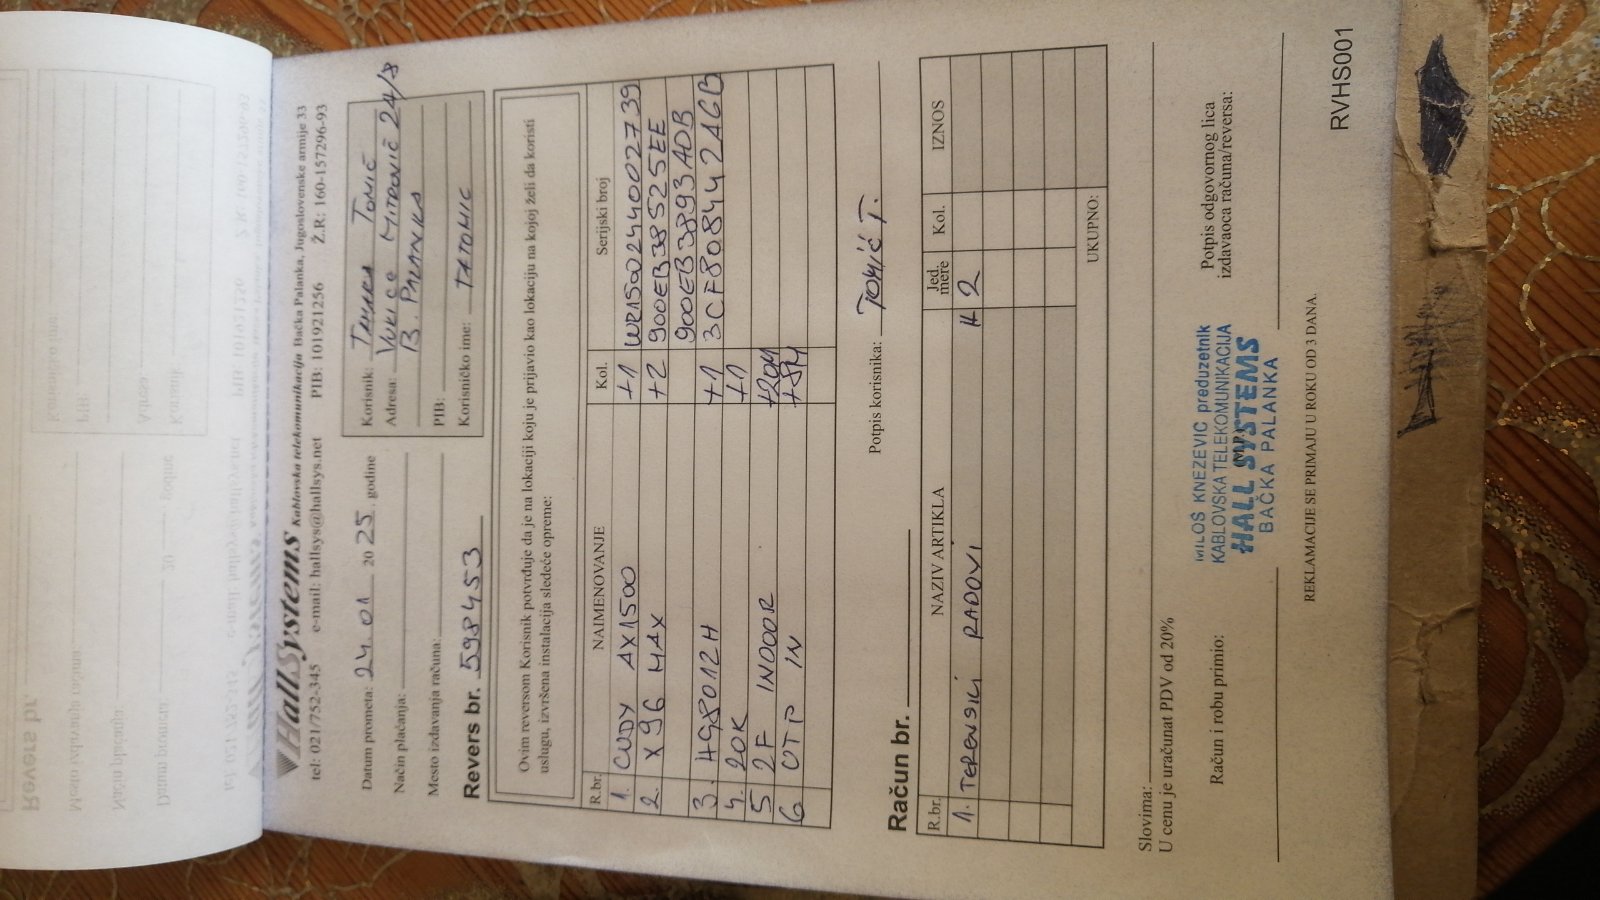 HallSystems Kablovska telekomunikacija Bačka Palanka, Jugoslovenske armije 33
tel: 021/752-345 e-mail: hallsys@hallsys.net PIB: 101921256 Ž.R: 160-157296-93
Datum prometa: 24. 01 2025. godine
Način plaćanja:
Mesto izdavanja računa:
Revers br. 598453
Korisnik: TAMARA TOMIĆ
Adresa: VUKICE MITROVIĆ 24/8
B. PALANKA
PIB:
Korisničko ime: TATOMIC
Ovim reversom Korisnik potvrđuje da je na lokaciji koju je prijavio kao lokaciju na kojoj želi da koristi
uslugu, izvršena instalacija sledeće opreme:
R.br. NAIMENOVANJE Kol. Serijski broj
1. CUDY AX1500 +1 WR1500244002739
2. X96 MAX +2 900EB38525EE
900EB3893ADB
3. HG8012H +1 3CF808442AGB
4. 20K +1
5 2F INDOOR +20M
6 UTP IN +5M
Potpis korisnika: TOMIĆ T.
Račun br.
R.br. NAZIV ARTIKLA Jed. mere Kol. IZNOS
1. TERENSKI RADOVI # 2
UKUPNO:
Slovima:
U cenu je uračunat PDV od 20%
Račun i robu primio:
MILOŠ KNEZEVIC preduzetnik
KABLOVSKA TELEKOMUNIKACIJA
HALL SYSTEMS
BAČKA PALANKA
M.P.
Potpis odgovornog lica
izdavaoca računa/reversa:
REKLAMACIJE SE PRIMAJU U ROKU OD 3 DANA.
RVHS001